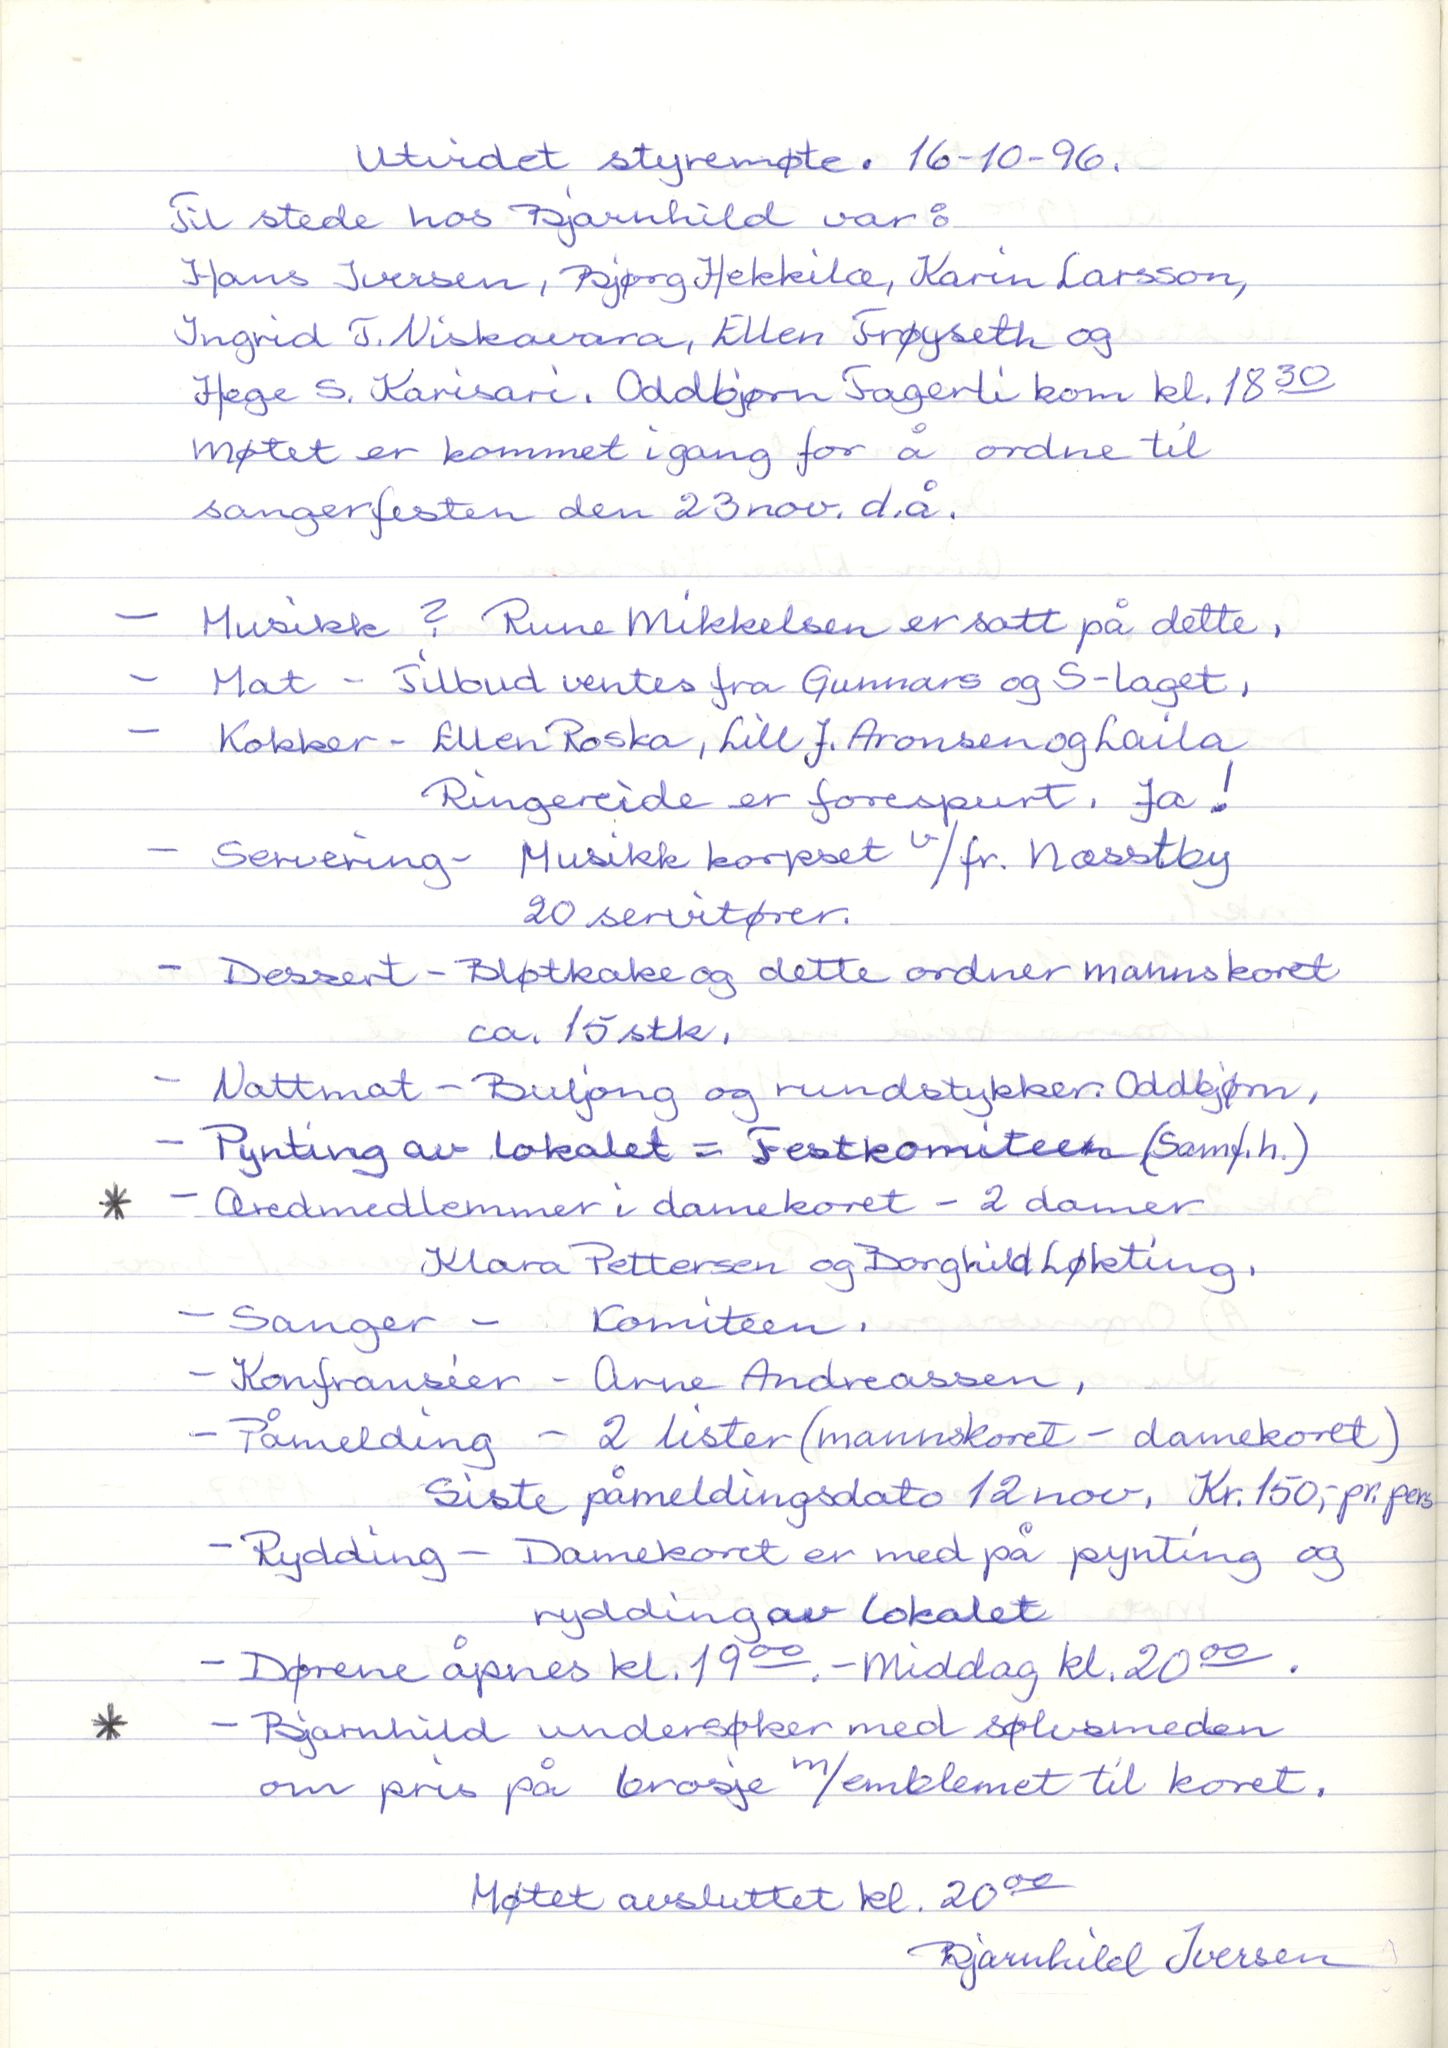 Utvidet styremøte. 16-10-96.
Til stede hos Bjarnhild var:
Hans Iversen, Bjørg Hekkila, Karin Larsson,
Ingrid T. Niskavara, Ellen Frøyseth og
Hege S. Karisari. Oddbjørn Fagerli kom kl. 18 30
Møtet er kommet igang for å ordne til
sangerfesten den 23 nov. d.å.
- Musikk ? Rune Mikkelsen er satt på dette.
- Mat - Tilbud ventes fra Gunnars og S-laget.
- Kokker - Ellen Roska, Lill J. Aronsen og Laila
Ringereide er forespurt. Ja!
- Servering - Musikk korpset v/fr. Næsstby
20 servitører.
- Dessert - Bløtkake og dette ordner mannskoret
ca. 15 stk.
- Nattmat - Buljong og rundstykker. Oddbjørn.
- Pynting av lokalet = Festkomiteen (Samf.h.)
* - Æredmedlemmer i damekoret - 2 damer
Klara Pettersen og Borghild Løkting.
- Sanger - Komiteen.
- Konfransier - Arne Andreassen.
- Påmelding - 2 lister (mannskoret - damekoret)
Siste påmeldingsdato 12 nov. Kr. 150,- pr. pers
- Rydding - Damekoret er med på pynting og
rydding av lokalet
- Dørene åpnes kl. 19 00. - Middag kl. 20 00.
* - Bjarnhild undersøker med sølvsmeden
om pris på brosje m/emblemet til koret.
Møtet avsluttet kl. 20 00
Bjarnhild Iversen